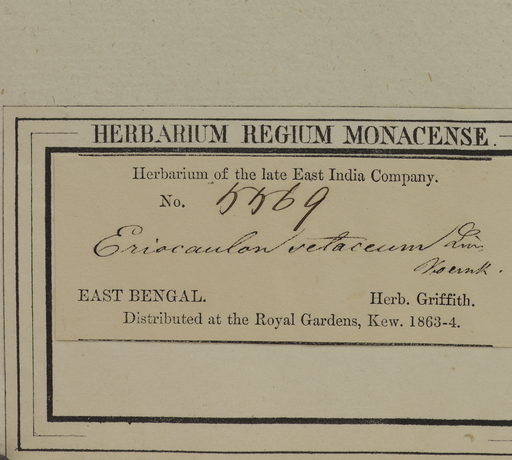 HERBARIUM REGIUM MONACENSE.
Herbarium of the late East India Company.
No. 5569
Eriocaulon setaceum Lin.
Koernk.
EAST BENGAL. Herb. Griffith.
Distributed at the Royal Gardens, Kew. 1863-4.